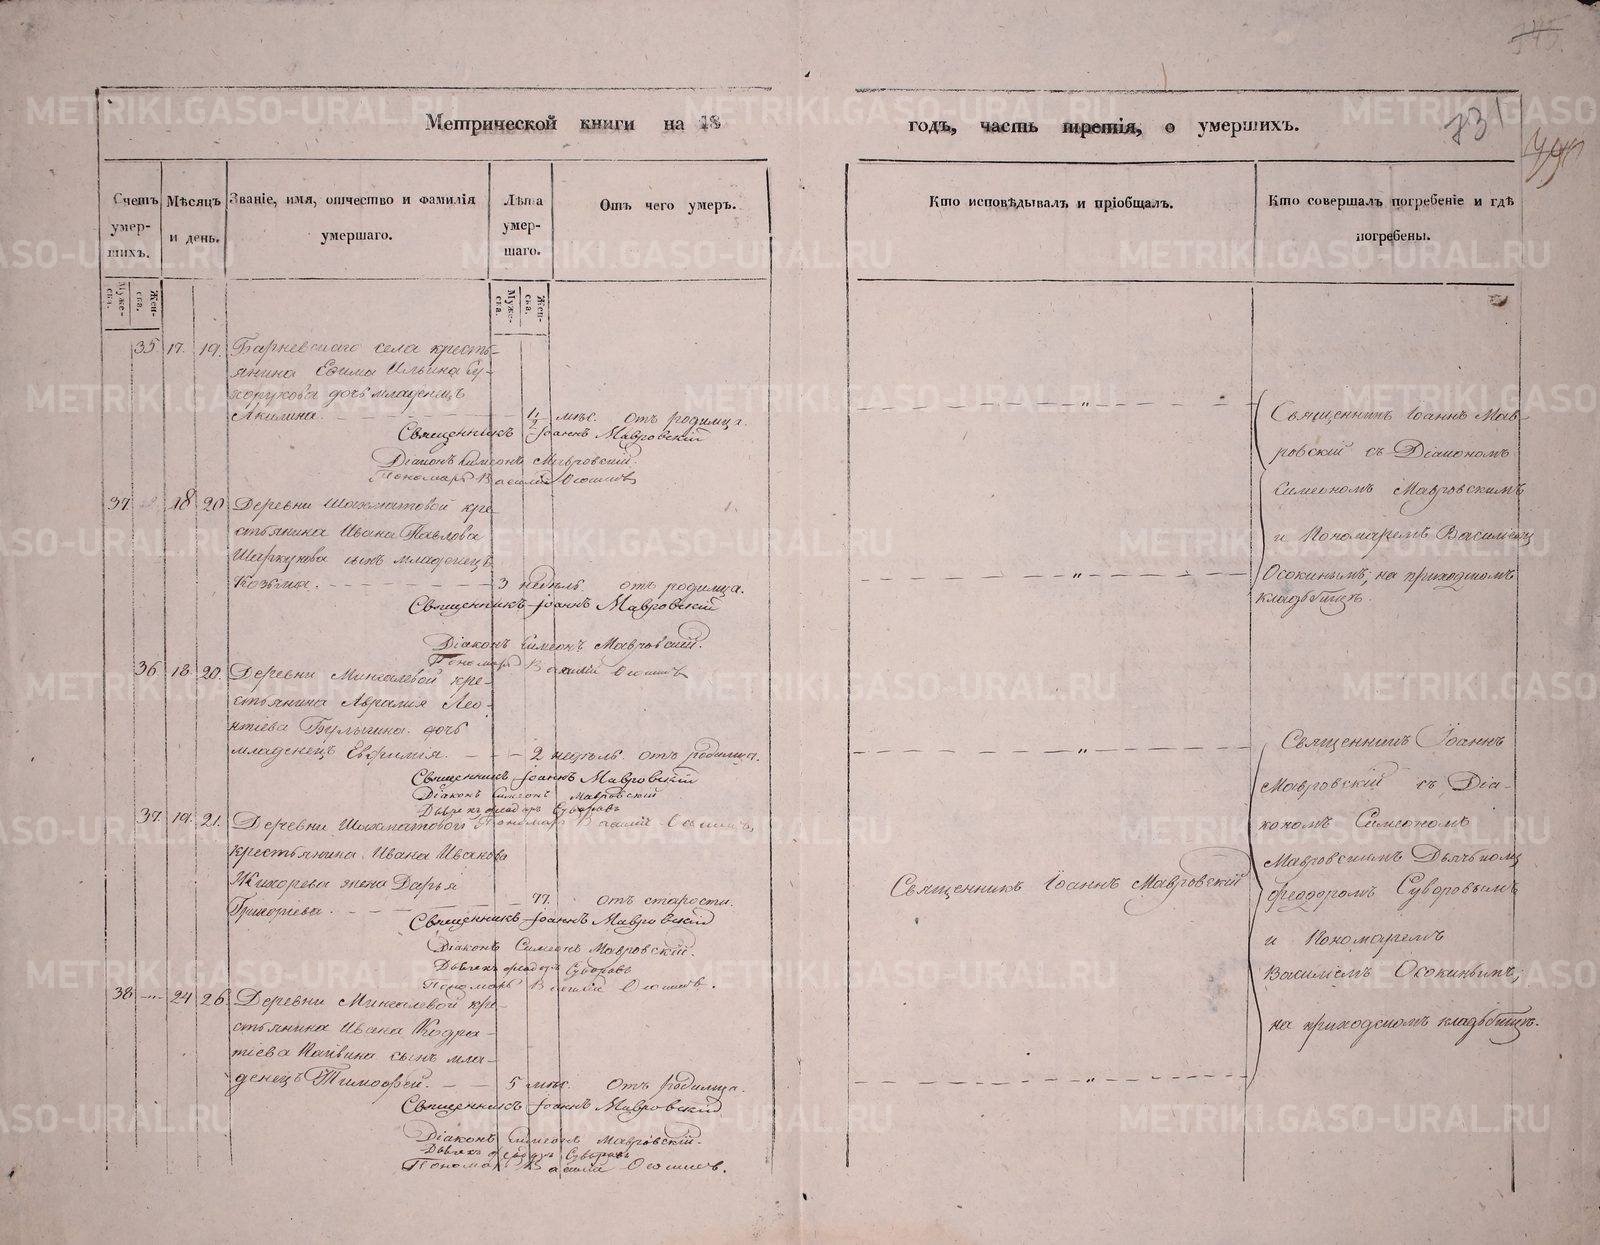 145.
Метрической книги на 18
годъ, часть третія, о умершихъ.
731
Счетъ умер-шихъ.
Мѣсяцъ и день.
Званіе, имя, отчество и фамилія умершаго.
Лѣта умер-шаго.
Отъ чего умеръ.
Кто исповѣдывалъ и пріобщалъ.
Кто совершалъ погребеніе и гдѣ погребены.
Муже-ска.
Жен-ска.
Муже-ска.
Жен-ска.
35 17. 19. Барневскаго села кресть-
янина Ефима Ильина Су-
хорукова дочь младенецъ
Акилина. мѣс. отъ родимца.
Священникъ Іоаннъ Мавровскій
Діаконъ Симеонъ Мавровскій.
Пономарь Василій Осокинъ
37 18 20 Деревни Шахматовой кре-
стьянина Ивана Павлова
сынъ младенецъ
Козьма. 3 недѣль отъ родимца.
Священникъ Іоаннъ Мавровскій
Діаконъ Симеонъ Мавровскій.
Пономарь Василій Осокинъ
36 18. 20. Деревни Мингалевой кре-
стьянина Аврамія Лео-
нтіева Булыгина дочь
младенецъ Евфимія. 2 недѣль. отъ родимца.
Священникъ Іоаннъ Мавровскій
Діаконъ Симеонъ Мавровскій
Дьячекъ Феодоръ Суворовъ
Пономарь Василій Осокинъ
37. 19. 21. Деревни Шахматовой
крестьянина Ивана Иванова
Жихорева жена Дарья
Григорьева. 77. отъ старости.
Священникъ Іоаннъ Мавровскій
Діаконъ Симеонъ Мавровскій.
Дьячекъ Феодоръ Суворовъ
Пономарь Василій Осокинъ.
38 24 26 Деревни Мингалевой кре-
стьянина Ивана Кодра-
тіева сынъ мла-
денецъ Тимофей. 5 мѣс. Отъ родимца.
Священникъ Іоаннъ Мавровскій
Діаконъ Симеонъ Мавровскій.
Дьячекъ Феодоръ Суворовъ
Пономарь Василій Осокинъ.
Священникъ Іоаннъ Мавровскій
Священникъ Іоаннъ Мав-
ровскій съ Діакономъ
Симеономъ Мавровскимъ
и Пономаремъ Василіемъ
Осокинымъ; на приходскомъ
кладбищѣ.
Священникъ Іоаннъ
Мавровскій съ Діа-
кономъ Симеономъ
Мавровскимъ Дьячькомъ
Феодоромъ Суворовымъ
и Пономаремъ
Василіемъ Осокинымъ;
на приходскомъ кладбищѣ.
METRIKI.GASO-URAL.RU